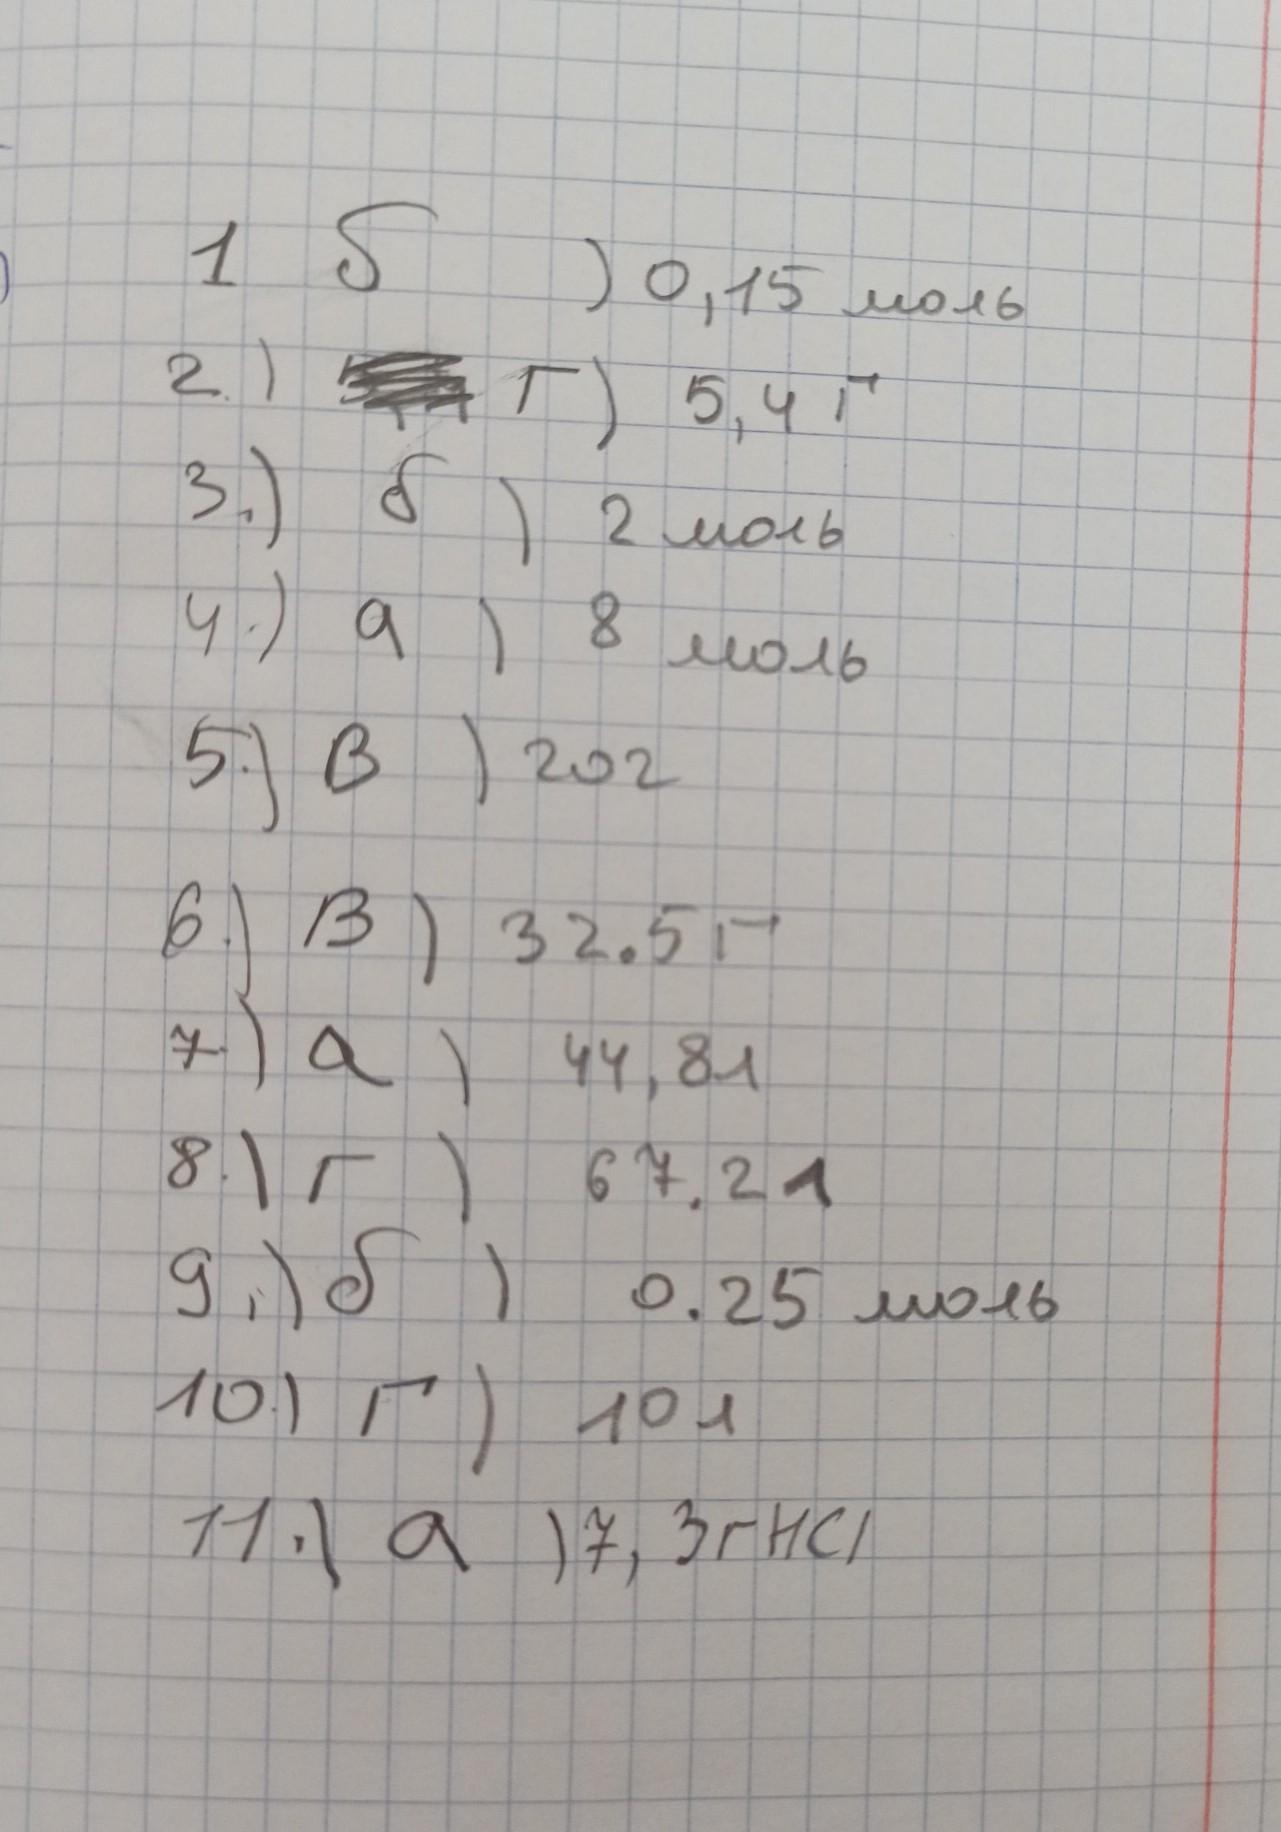 1 б ) 0,15 моль
2.) г) 5,4 г
3.) б) 2 моль
4.) а) 8 моль
5.) В) 20г
6.) В) 32.5 г
7.) а) 44,8л
8.) г) 67.2л
9.) б) 0.25 моль
10.) г) 10л
11.) а) 7,3гHCl